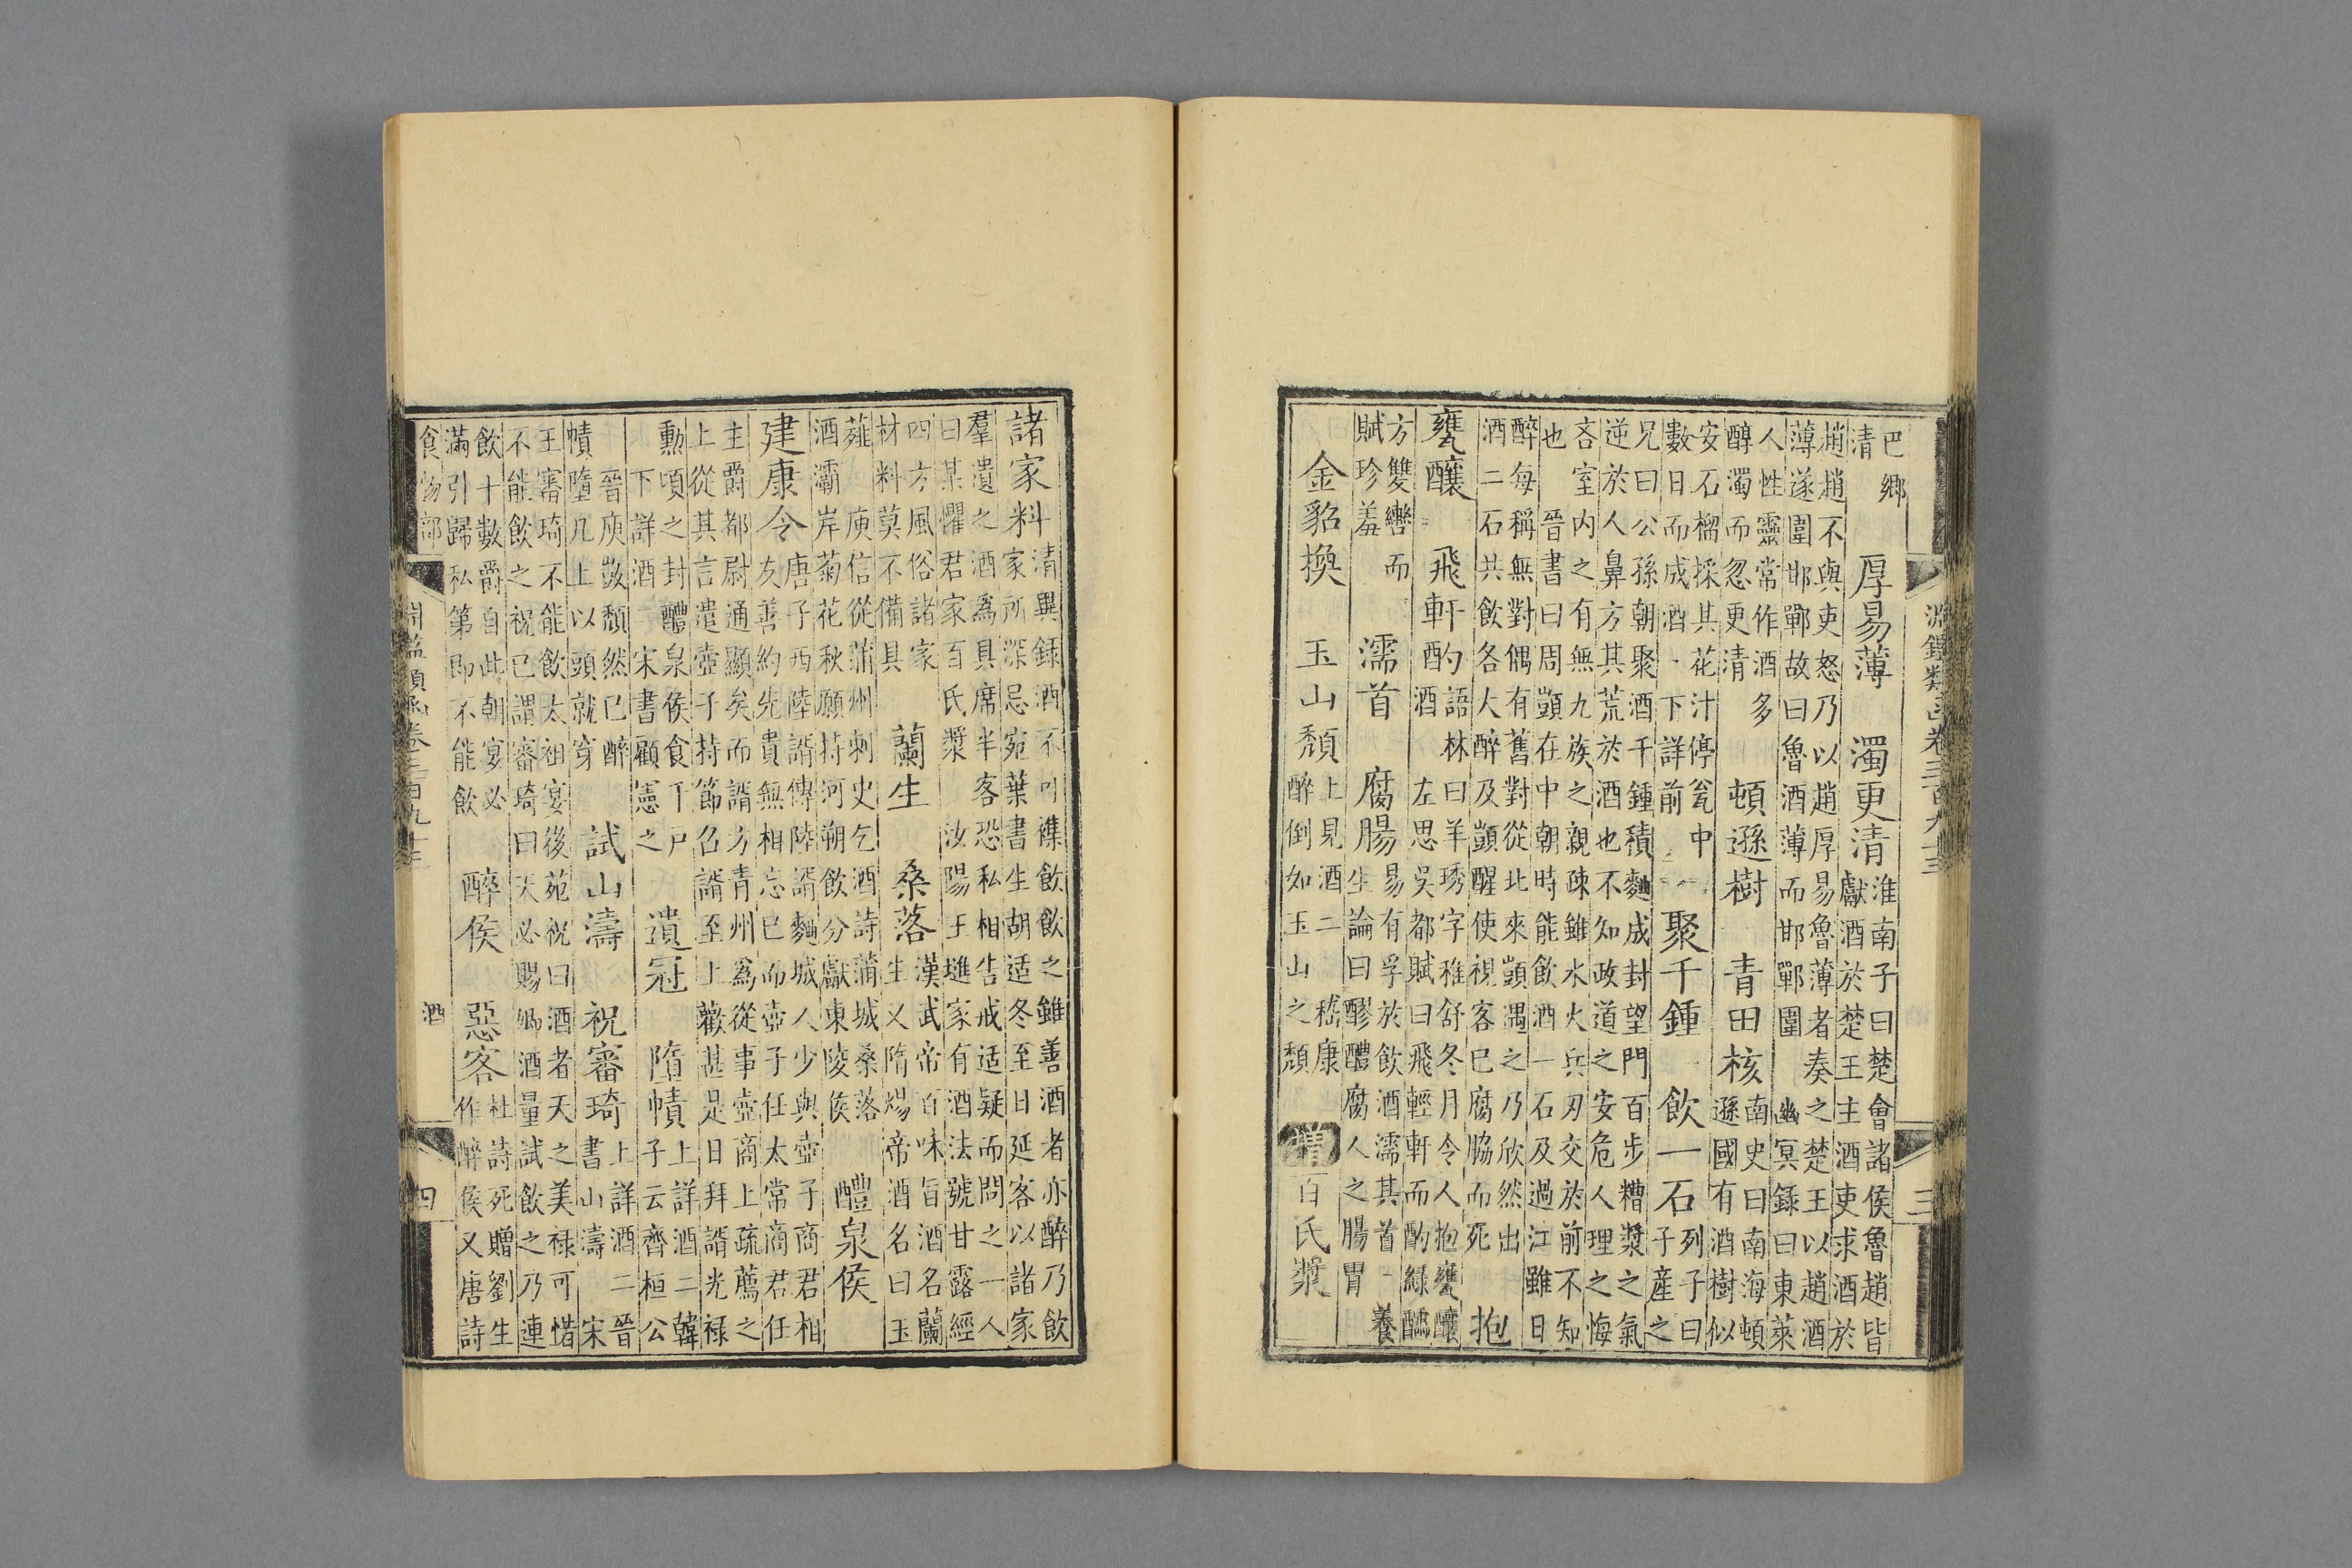 淵鑑類函卷三百九十三 三
巴鄉
清
厚易薄 濁更清
淮南子曰楚會諸侯魯趙皆
獻酒於楚王主酒吏求酒於
趙趙不與吏怒乃以趙厚易魯薄者奏之楚王以趙酒
薄遂圍邯鄲故曰魯酒薄而邯鄲圍 幽冥錄曰東萊
人性靈常作酒多
醇濁而忽更清
頓遜樹 青田核
南史曰南海頓
遜國有酒樹似
安石榴採其花汁停瓮中
數日而成酒 下詳前
聚千鍾 飲一石
列子曰
子產之
兄曰公孫朝聚酒千鍾積麯成封望門百步糟漿之氣
逆於人鼻方其荒於酒也不知政道之安危人理之悔
吝室内之有無九族之親疎雖水火兵刃交於前不知
也 晉書曰周顗在中朝時能飲酒一石及過江雖日
醉每稱無對偶有舊對從北來顗遇之乃欣然出
酒二石共飲各大醉及顗醒使視客已腐脇而死
抱
甕釀 飛軒酌
語林曰羊琇字稚舒冬月令人抱甕釀
酒 左思吳都賦曰飛輕軒而酌綠醽
方雙轡而
賦珍羞
濡首 腐腸
易有孚於飲酒濡其首 養
生論曰醪醴腐人之腸胃
金貂換 玉山頹
上見酒二 嵇康
醉倒如玉山之頹
增 百氏漿
諸家料
清異錄酒不可襍飲飲之雖善酒者亦醉乃飲
家所深忌宛葉書生胡适冬至日延客以諸家
羣遺之酒為具席半客恐私相告戒适疑而問之一人
曰某懼君家百氏漿 汝陽王璡家有酒法號甘露經
四方風俗諸家
材料莫不備具
蘭生 桑落
漢武帝百味旨酒名蘭
生又隋煬帝酒名曰玉
薤 庾信從蒲州刺史乞酒詩蒲城桑落
酒灞岸菊花秋願持河朔飲分獻東陵侯
醴泉侯
建康令
唐子西陸諝傳陸諝麴城人少與壺子商君相
友善約先貴無相忘已而壺子任太常商君任
主爵都尉通顯矣而諝方青州為從事壺商上疏薦之
上從其言遣壺子持節召諝至上歡甚是日拜諝光禄
勳頃之封醴泉侯食千戶
下詳酒 宋書顧憲之
遺冠 墮幘
上詳酒二韓
子云齊桓公
晉庾敳頹然已醉
幘墮几上以頭就穿
試山濤 祝審琦
上詳酒二晉
書山濤 宋
王審琦不能飲太祖宴後苑祝曰酒者天之美禄可惜
不能飲之祝已謂審琦曰天必賜卿酒量試飲之乃連
飲十數爵自此朝宴必
滿引歸私第即不能飲
醉侯 惡客
杜詩死贈劉生
作醉侯又唐詩
食物部 淵鑑類函卷三百九十三 酒 四